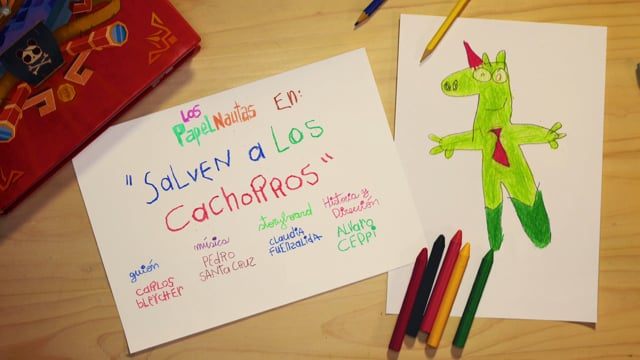 LOS
PapelNautas En:
"SALVEN a LOS
CACHORROS"
guión
CARLOS
BLETCHER
música
PEDRO
SANTA CRUZ
storyboard
CLAUDIA
FUENZALIDA
Historia y
Dirección
ALVARO
CEPPI